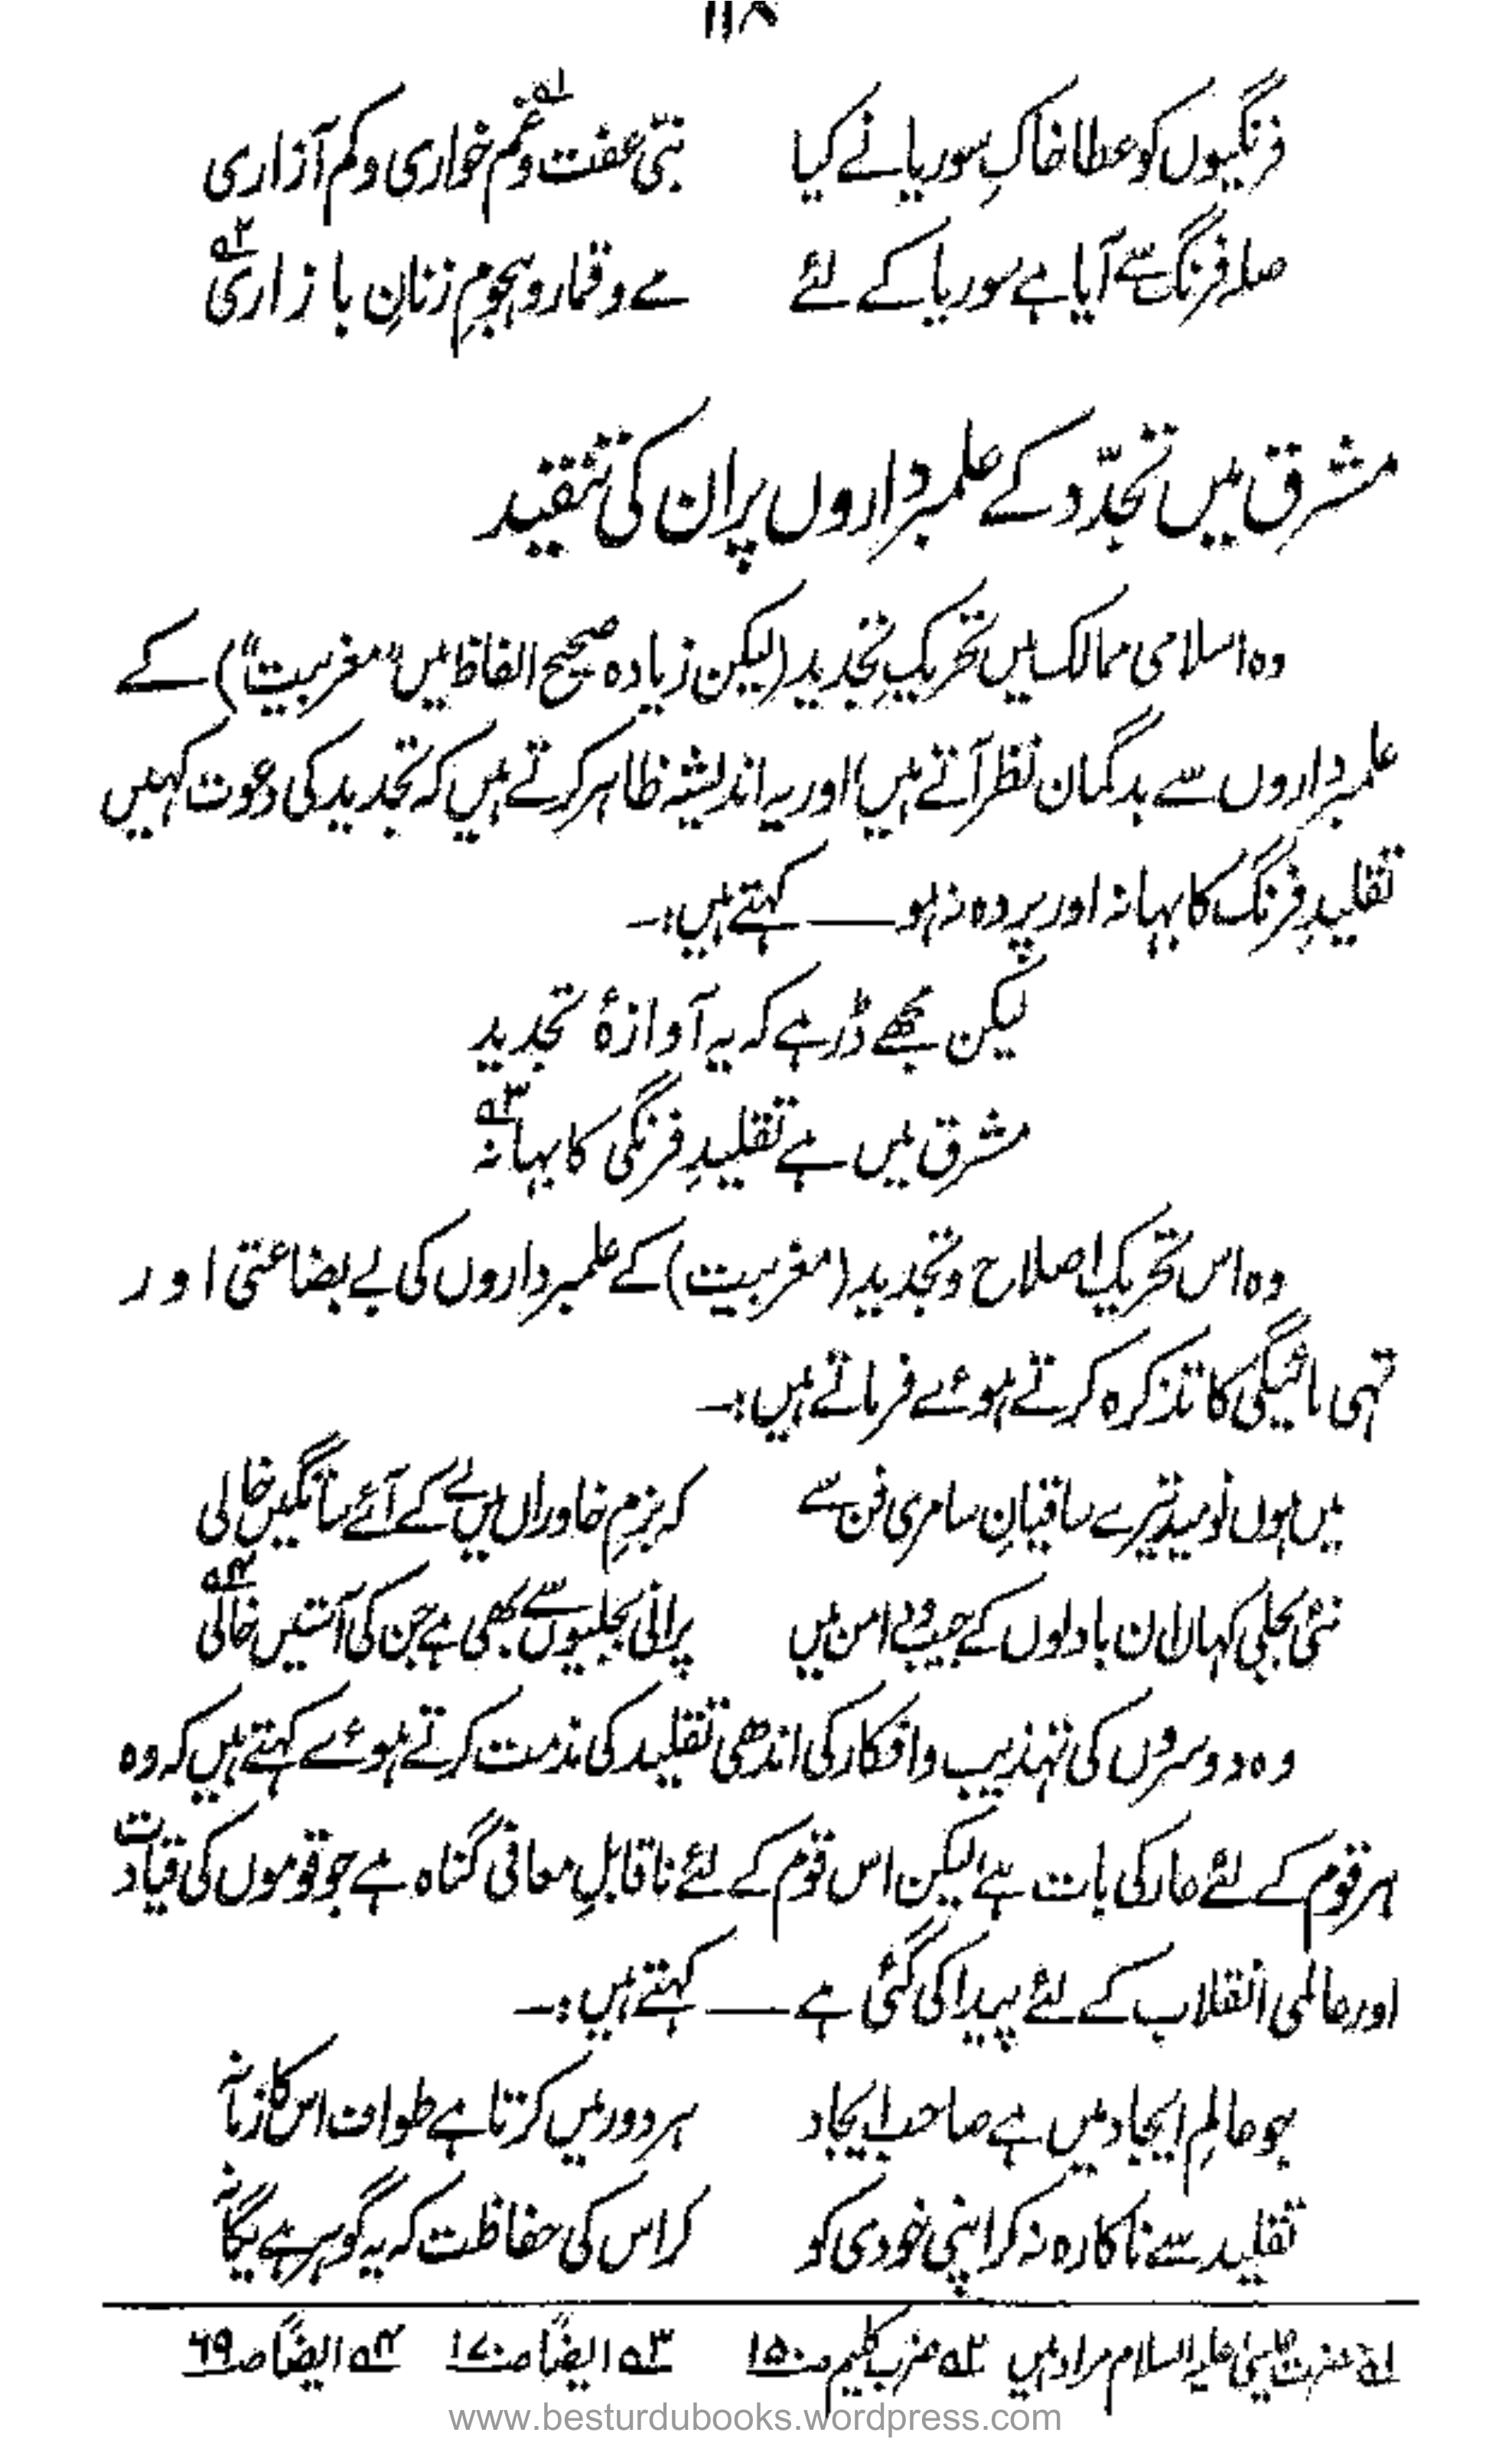 ۱۱۸
فرنگیوں کو عطا خاکِ سوریا نے کیا نبیِّ عفت و غم خواری و کم آزاری ؎۱
صلہ فرنگ سے آیا ہے سوریا کے لئے مے و قمار و ہجومِ زنانِ بازاری ؎۲
مشرق میں تجدّد کے علمبرداروں پر ان کی تنقید
وہ اسلامی ممالک میں تحریکِ تجدید (لیکن زیادہ صحیح الفاظ میں "مغربیت") کے
علمبرداروں سے بدگمان نظر آتے ہیں اور یہ اندیشہ ظاہر کرتے ہیں کہ تجدید کی دعوت کہیں
تقلیدِ فرنگ کا بہانہ اور پردہ نہ ہو —— کہتے ہیں:-
لیکن مجھے ڈر ہے کہ یہ آوازۂ تجدید
مشرق میں ہے تقلیدِ فرنگی کا بہانہ ؎۳
وہ اس تحریک اصلاح و تجدید (مغربیت) کے علمبرداروں کی بے بضاعتی اور
تہی مائیگی کا تذکرہ کرتے ہوئے فرماتے ہیں:-
میں ہوں نومید تیرے ساقیانِ سامری فن سے کہ بزمِ خاوراں میں لے کے آئے ساتگیں خالی
نئی بجلی کہاں ان بادلوں کے جیب و دامن میں پرانی بجلیوں سے بھی ہے جن کی آستیں خالی ؎۴
وہ دوسروں کی تہذیب و افکار کی اندھی تقلید کی مذمت کرتے ہوئے کہتے ہیں کہ وہ
ہر قوم کے لئے عار کی بات ہے لیکن اس قوم کے لئے ناقابلِ معافی گناہ ہے جو قوموں کی قیادت
اور عالمی انقلاب کے لئے پیدا کی گئی ہے —— کہتے ہیں:-
جو عالمِ ایجاد میں ہے صاحبِ ایجاد ہر دور میں کرتا ہے طواف اس کا زمانہ
تقلید سے ناکارہ نہ کر اپنی خودی کو کر اس کی حفاظت کہ یہ گوہر ہے یگانہ
؎۱ حضرت عیسیٰ علیہ السلام مراد ہیں ؎۲ ضرب کلیم صـ۱۵۰ ؎۳ ایضاً صـ۱۷۰ ؎۴ ایضاً صـ۶۹
www.besturdubooks.wordpress.com